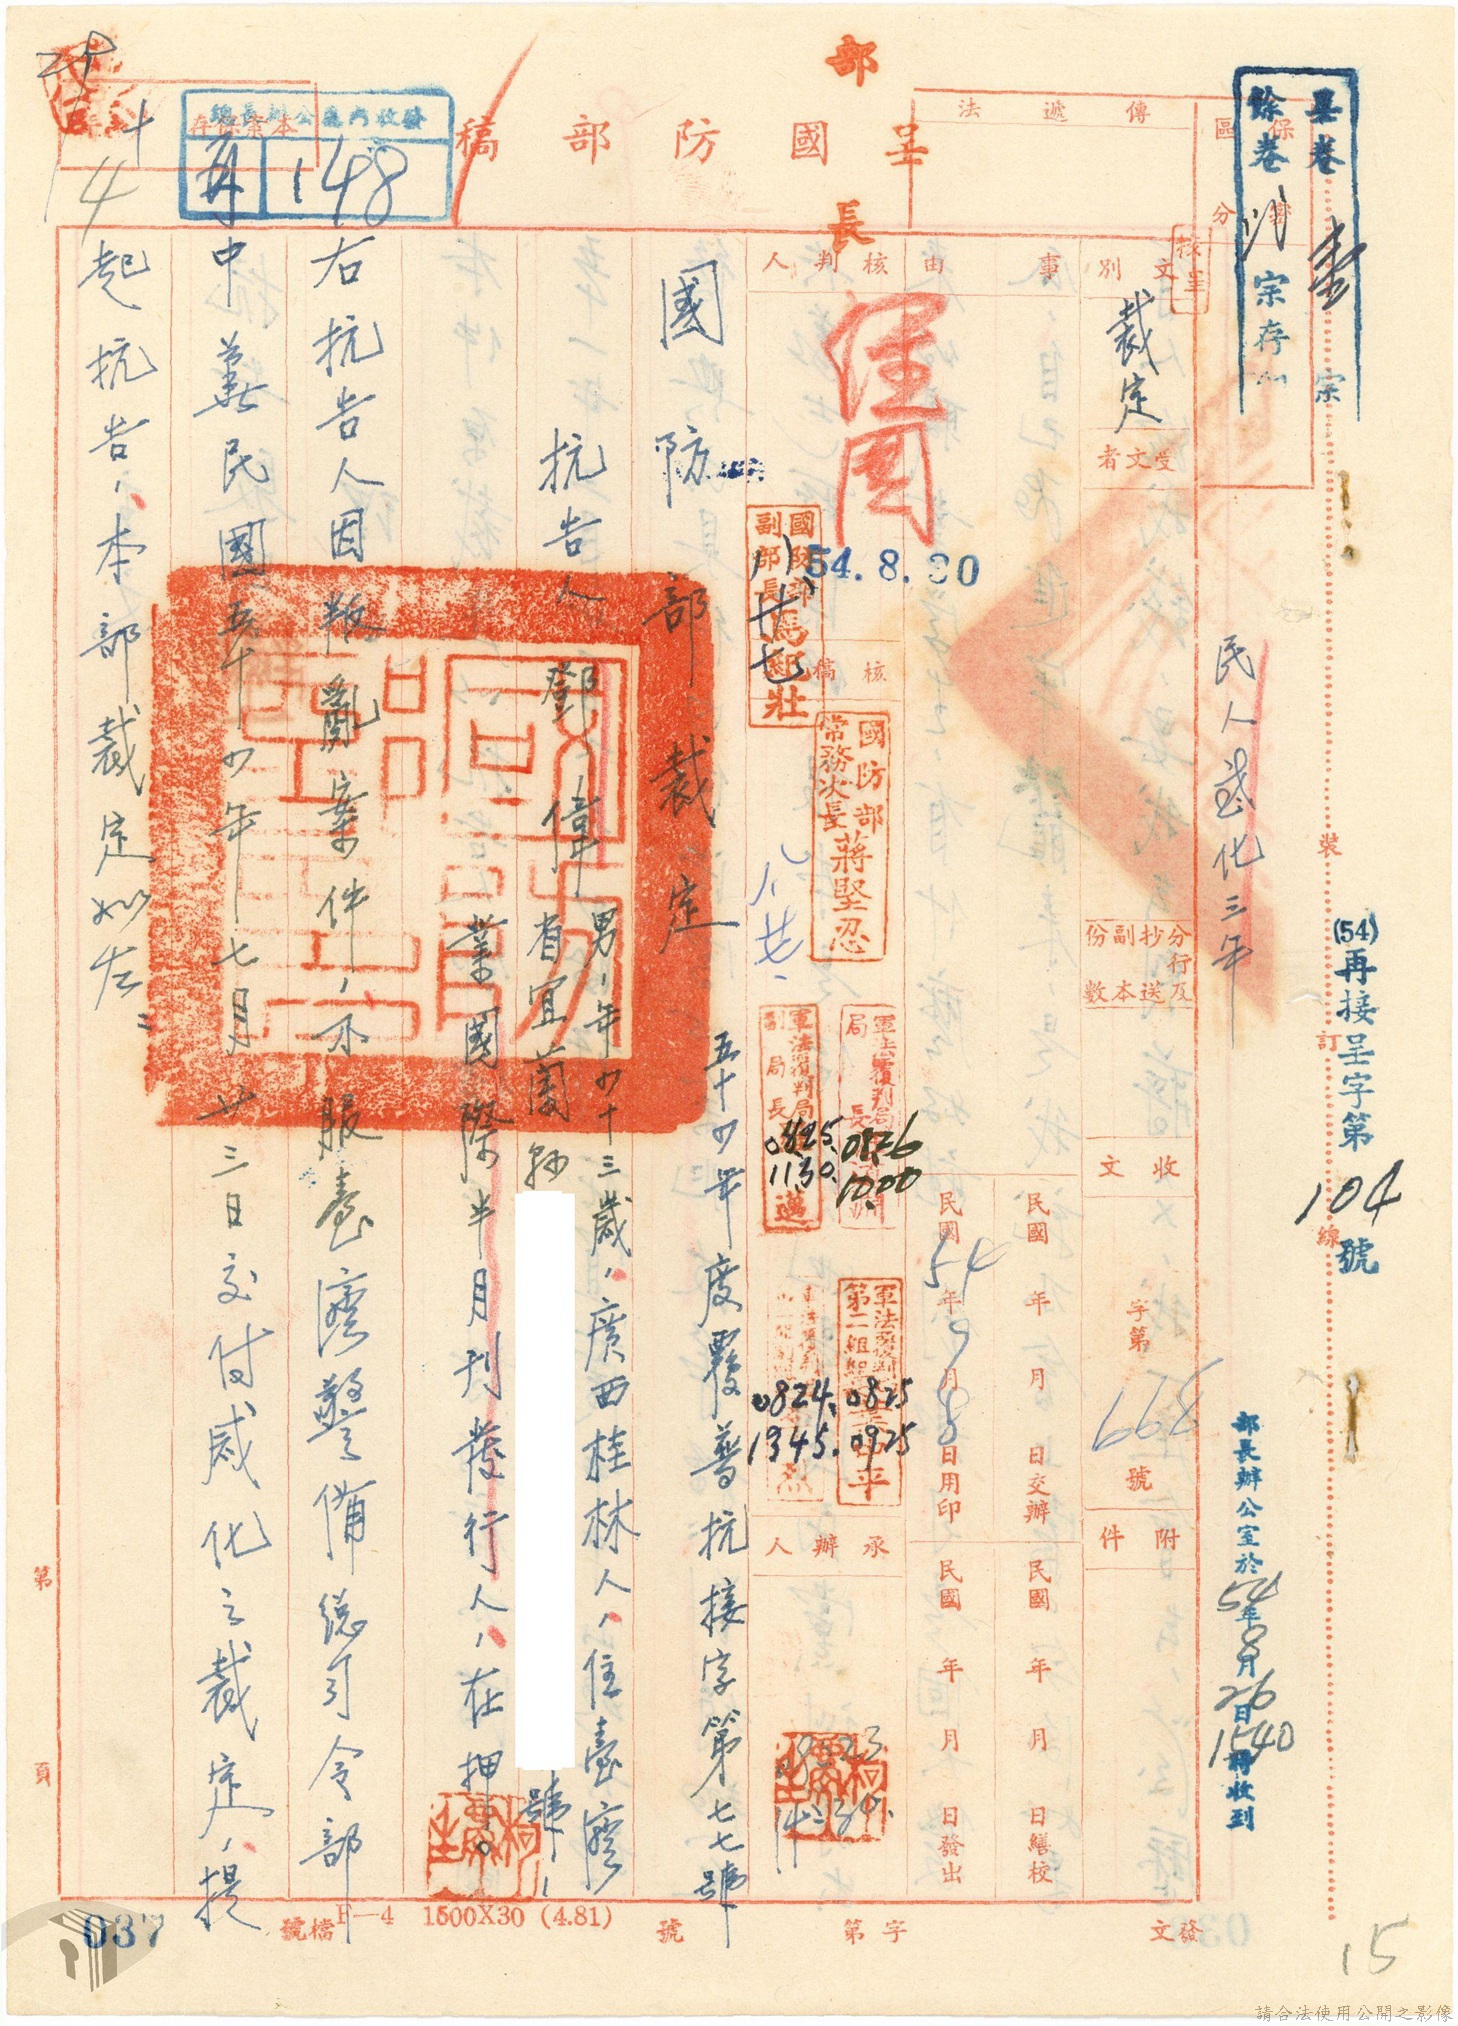 畢卷 壹 宗
餘卷 宗存
(54)再接呈字第104號
部長辦公室於54年8月26日1540時收到
民人感化三年
保密
區分
傳遞法
呈國防部稿
部長
核呈
文別
裁定
受文者
分行及
抄送
副本
份數
收文
字第
668
號
附件
事由
民國 年 月 日交辦
民國 年 月 日繕校
民國54年9月8日用印
民國 年 月 日發出
核判人
經國
54.8.30
國防部
副部長馬紀壯
八廿七
核稿
國防部
常務次長蔣堅忍
八廿六
軍法覆判局
局長
0826
1000
軍法覆判局
副局長
0825
1130
軍法覆判局
第二組組長
0825
0925
0824
1945
承辦人
0823
1430
國防部裁定
五十四年度覆普抗接字第七七號
抗告人 鄧偉 男,年四十三歲,廣西桂林人,住臺灣
省宜蘭縣 號,
業國際半月刊發行人,在押。
右抗告人因叛亂案件,不服臺灣警備總司令部
中華民國五十四年七月廿三日交付感化之裁定,提
起抗告,本部裁定如左:
總長辦公室內收發
再 148
本案保存
裝 訂 線
第 頁
發文 字第 號
檔號
F—4 1500X30 (4.81)
037
15
請合法使用公開之影像